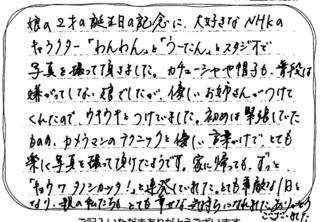 娘の2才の誕生日の記念に、大好きなNHKの
キャラクター「わんわん」と「うーたん」とスタジオで
写真を撮って頂きました。カチューシャや帽子も、普段は
嫌がってしない娘でしたが、優しいお姉さんがつけて
くれたので、ウキウキとつけていました。初めは緊張していた
ものの、カメラマンのテクニックと優しい言葉がけで、とても
楽に写真を撮って頂けたようです。家に帰っても、ずっと
を連発していました。とても素敵な1日と
なり、親の私たちも とても幸せな気持ちになれました。ありがとう
ございました。
ご記入いただきありがとうございます